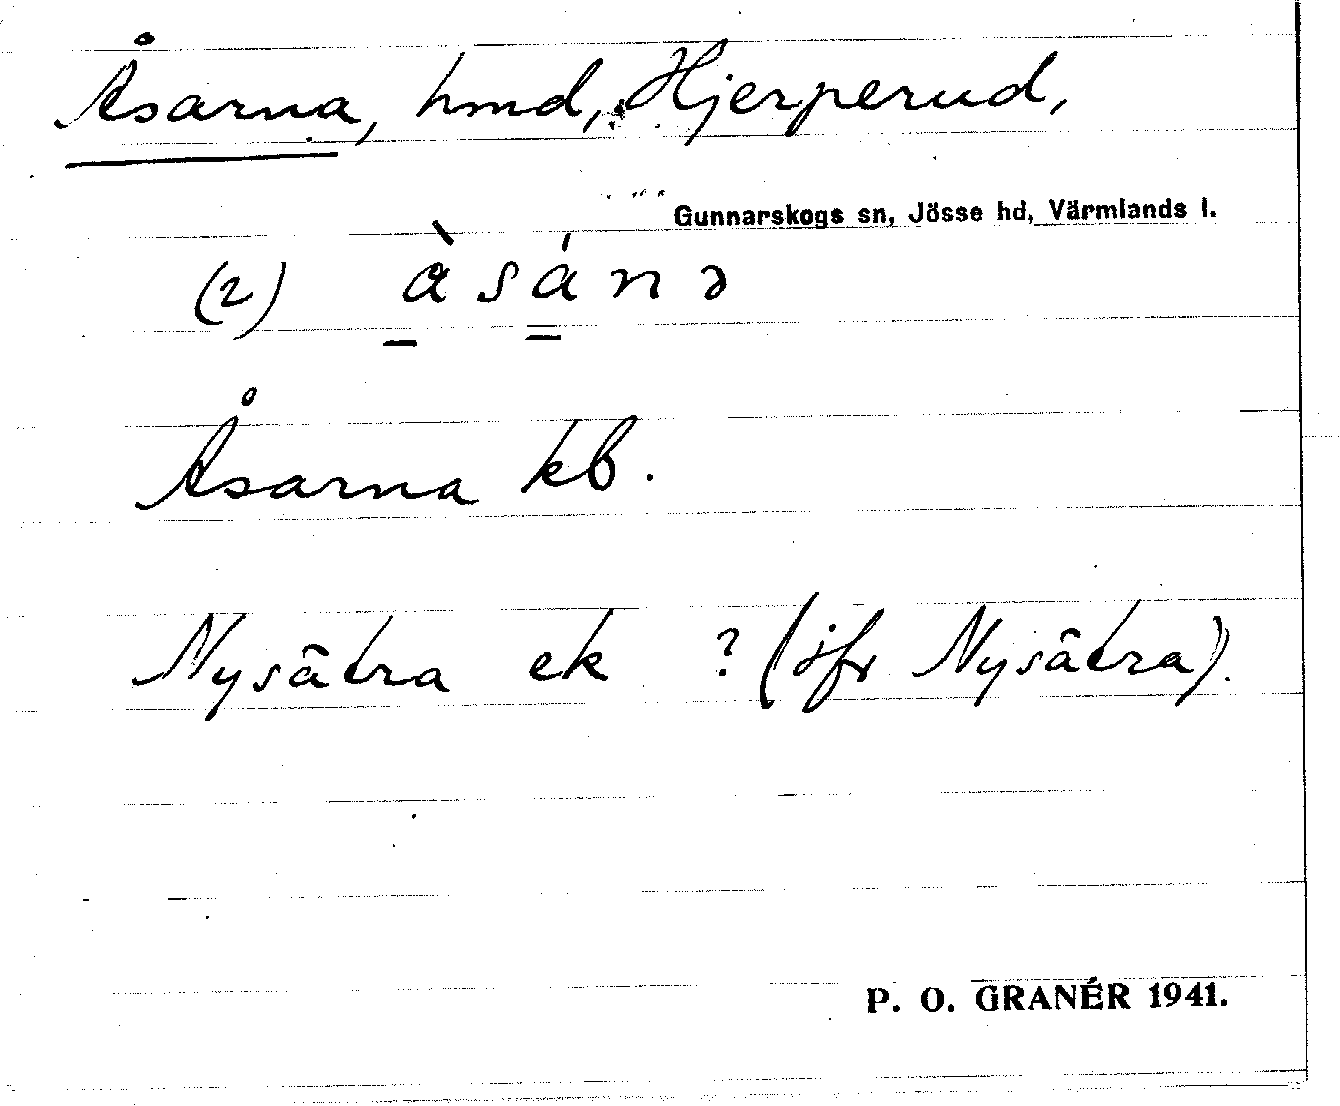 Åsarna, hmd, Hjerperud,
Gunnarskogs sn, Jösse hd, Värmlands l.
(2) å̀sánə
Åsarna kb.
Nysätra ek ? (jfr Nysätra).
P. O. GRANÉR 1941.